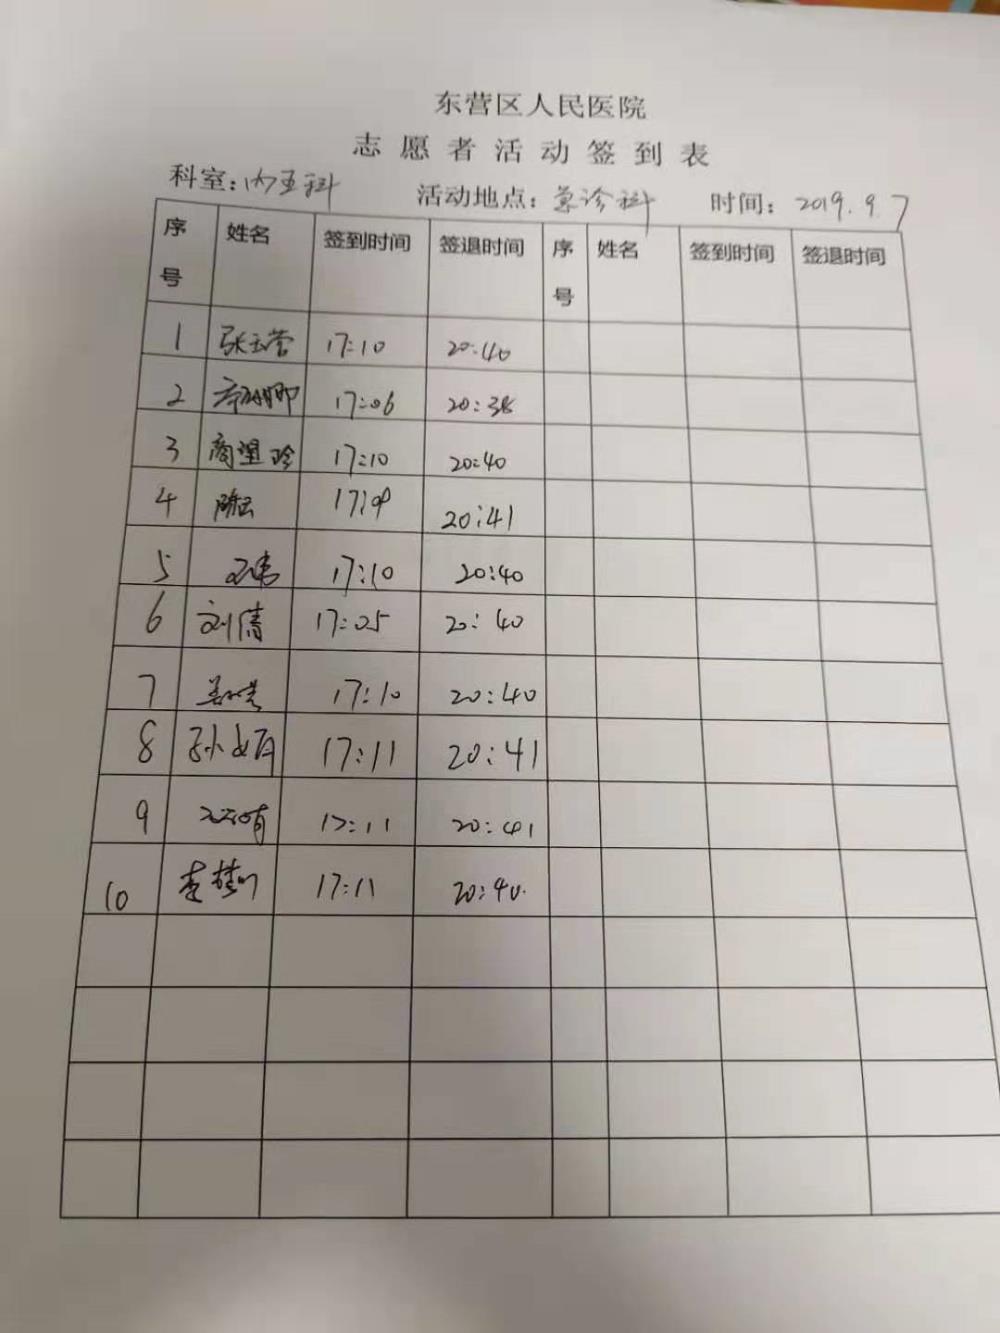 东营区人民医院
志愿者活动签到表
科室：内五科 活动地点：急诊科 时间：2019.9.7
序号 姓名 签到时间 签退时间 序号 姓名 签到时间 签退时间
1 张玉营 17:10 20:40
2 17:06 20:38
3 17:10 20:40
4 17:09 20:41
5 17:10 20:40
6 刘倩 17:05 20:40
7 17:10 20:40
8 17:11 20:41
9 17:11 20:41
10 17:11 20:40